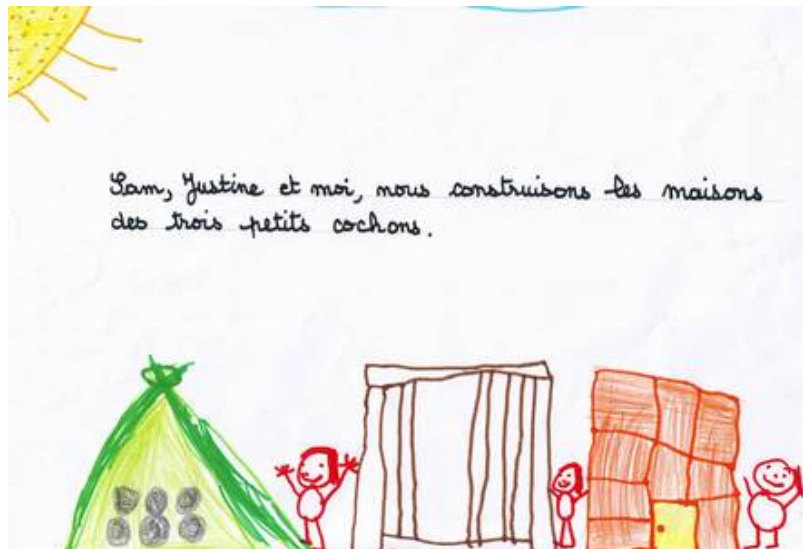 Sam, Justine et moi, nous construisons les maisons
des trois petits cochons.